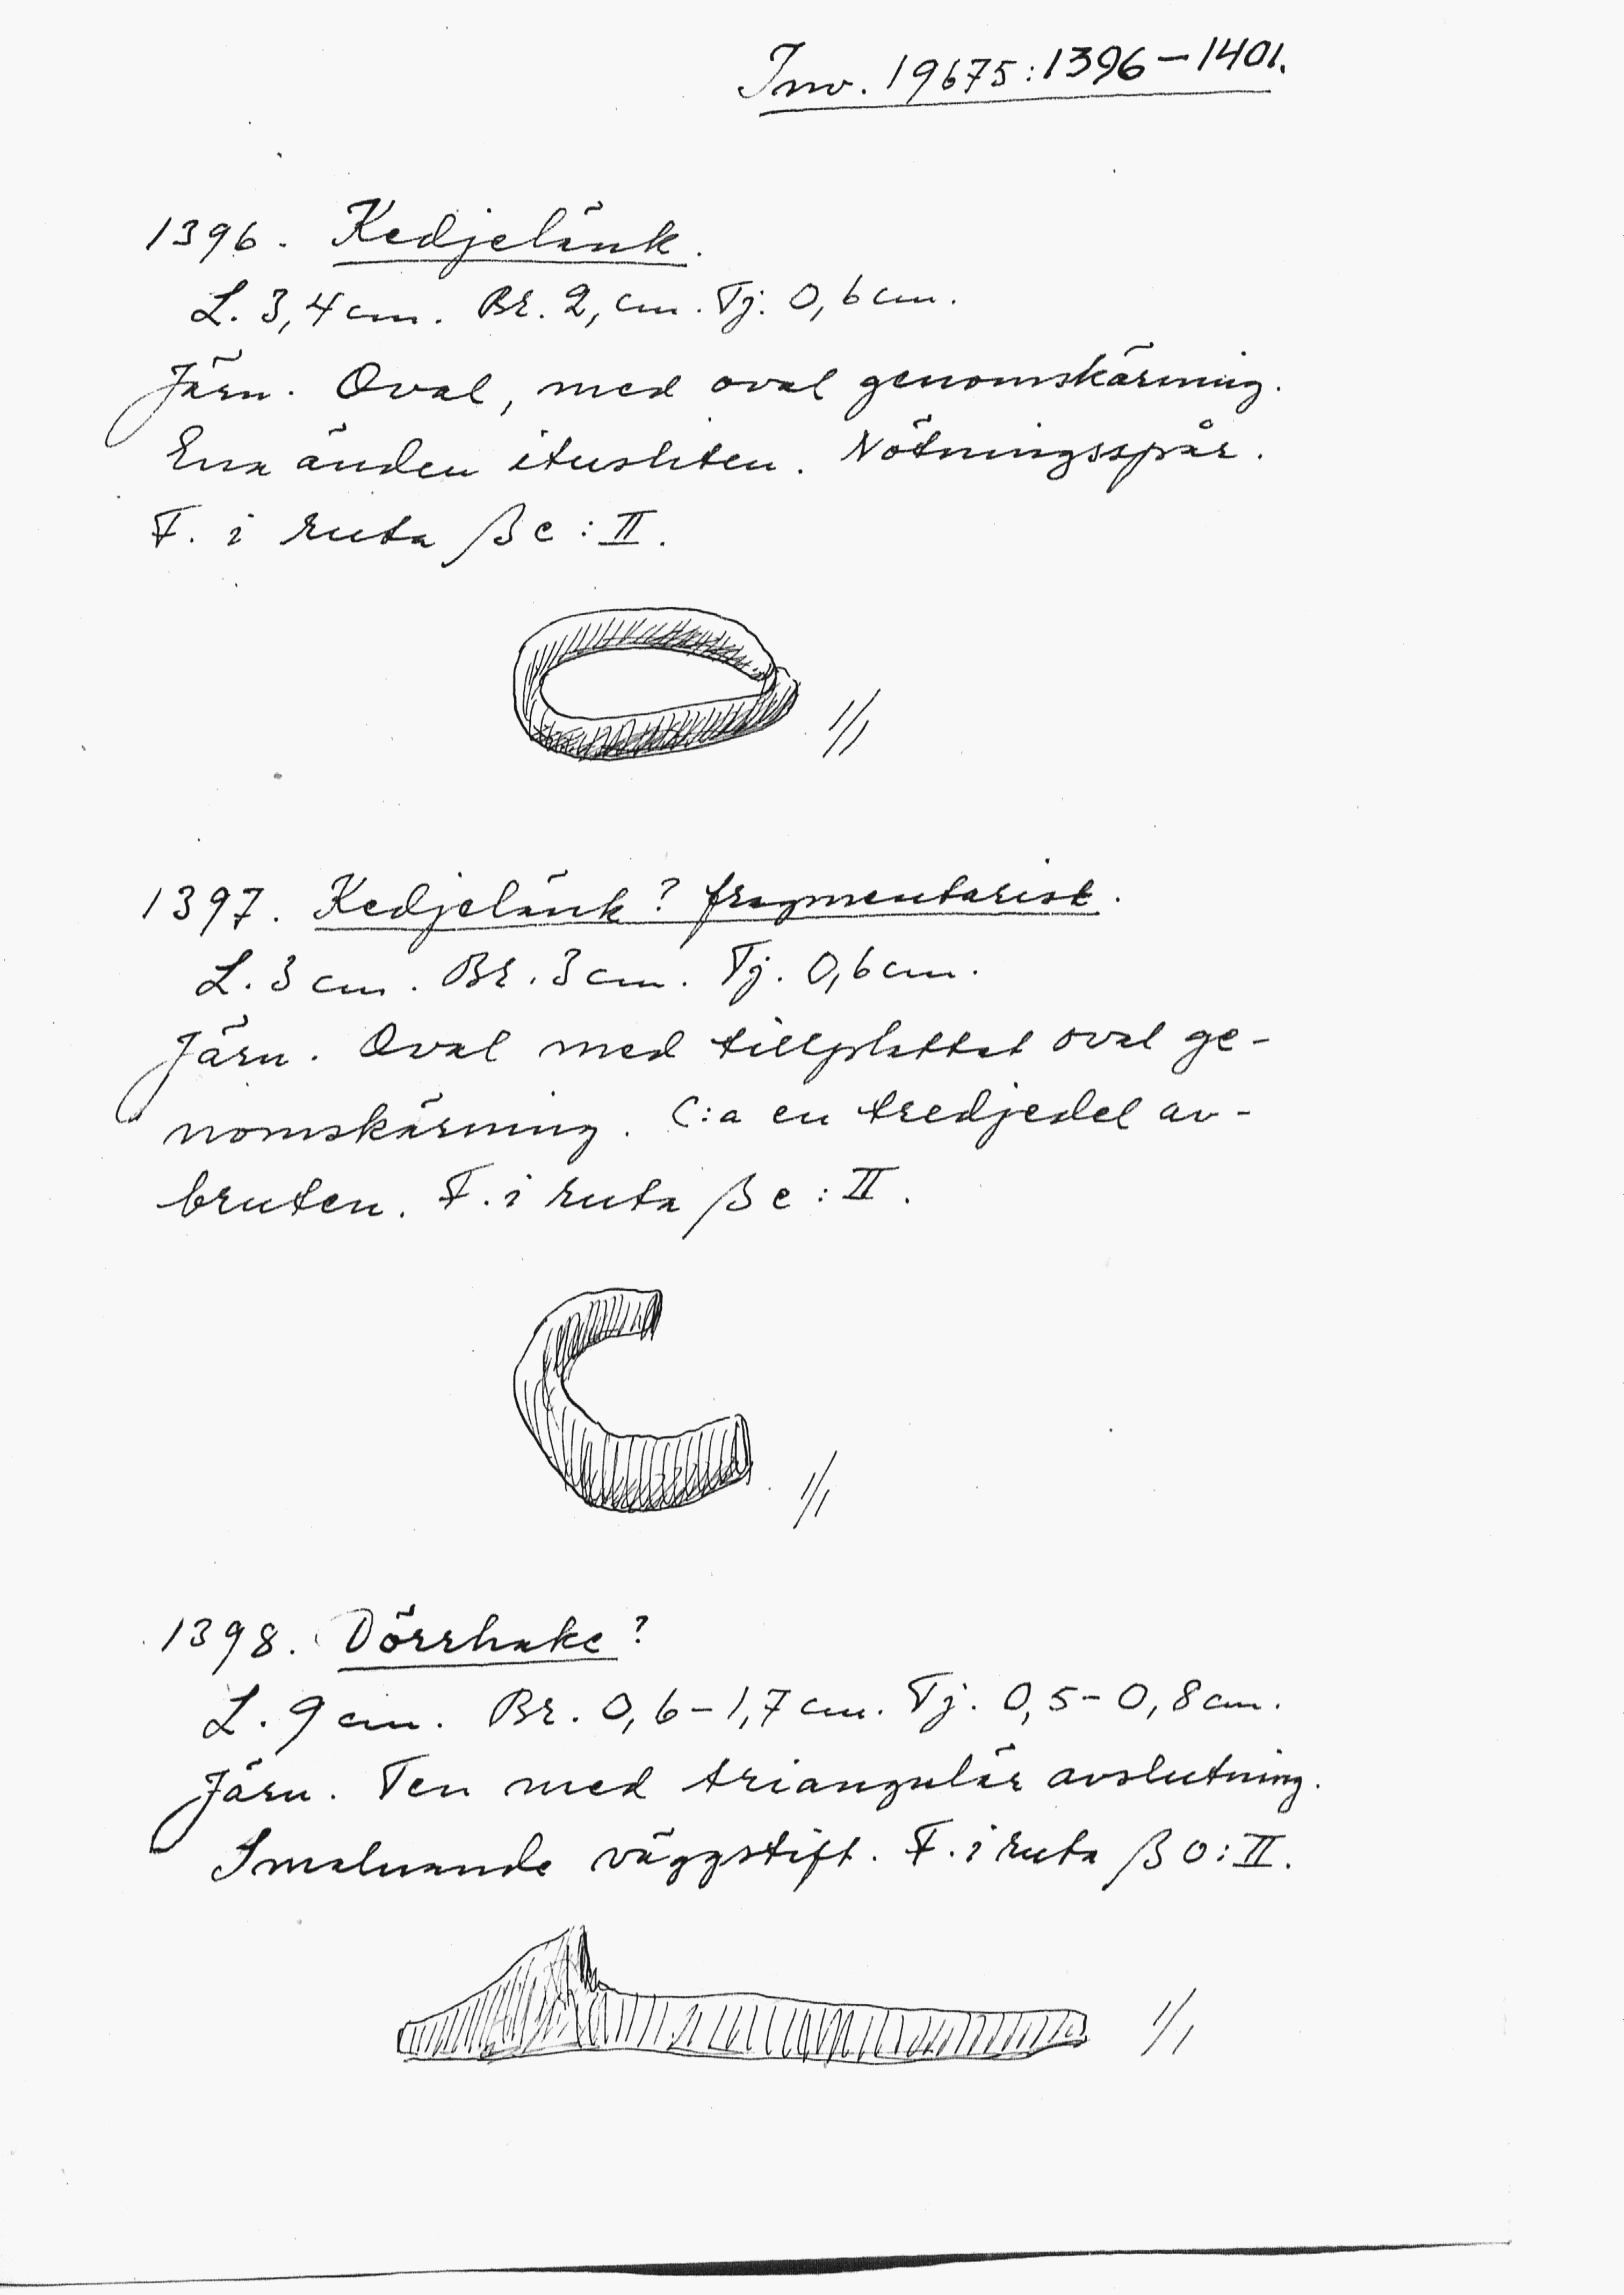 Inv. 19675:1396–1401.
1396. Kedjelänk.
L. 3,4 cm. Br. 2, cm. Tj. 0,6 cm.
Järn. Oval, med oval genomskärning.
Ena änden itusliten. Nötningsspår.
F. i ruta βc:II.
1/1
1397. Kedjelänk? fragmentarisk.
L. 3 cm. Br. 3 cm. Tj. 0,6 cm.
Järn. Oval med tillplattat oval ge-
nomskärning. C:a en tredjedel av-
bruten. F. i ruta βe:II.
1/1
1398. Dörrhake?
L. 9 cm. Br. 0,6–1,7 cm. Tj. 0,5–0,8 cm.
Järn. Ten med triangulär avslutning.
Smalnande väggstift. F. i ruta βo:II.
1/1